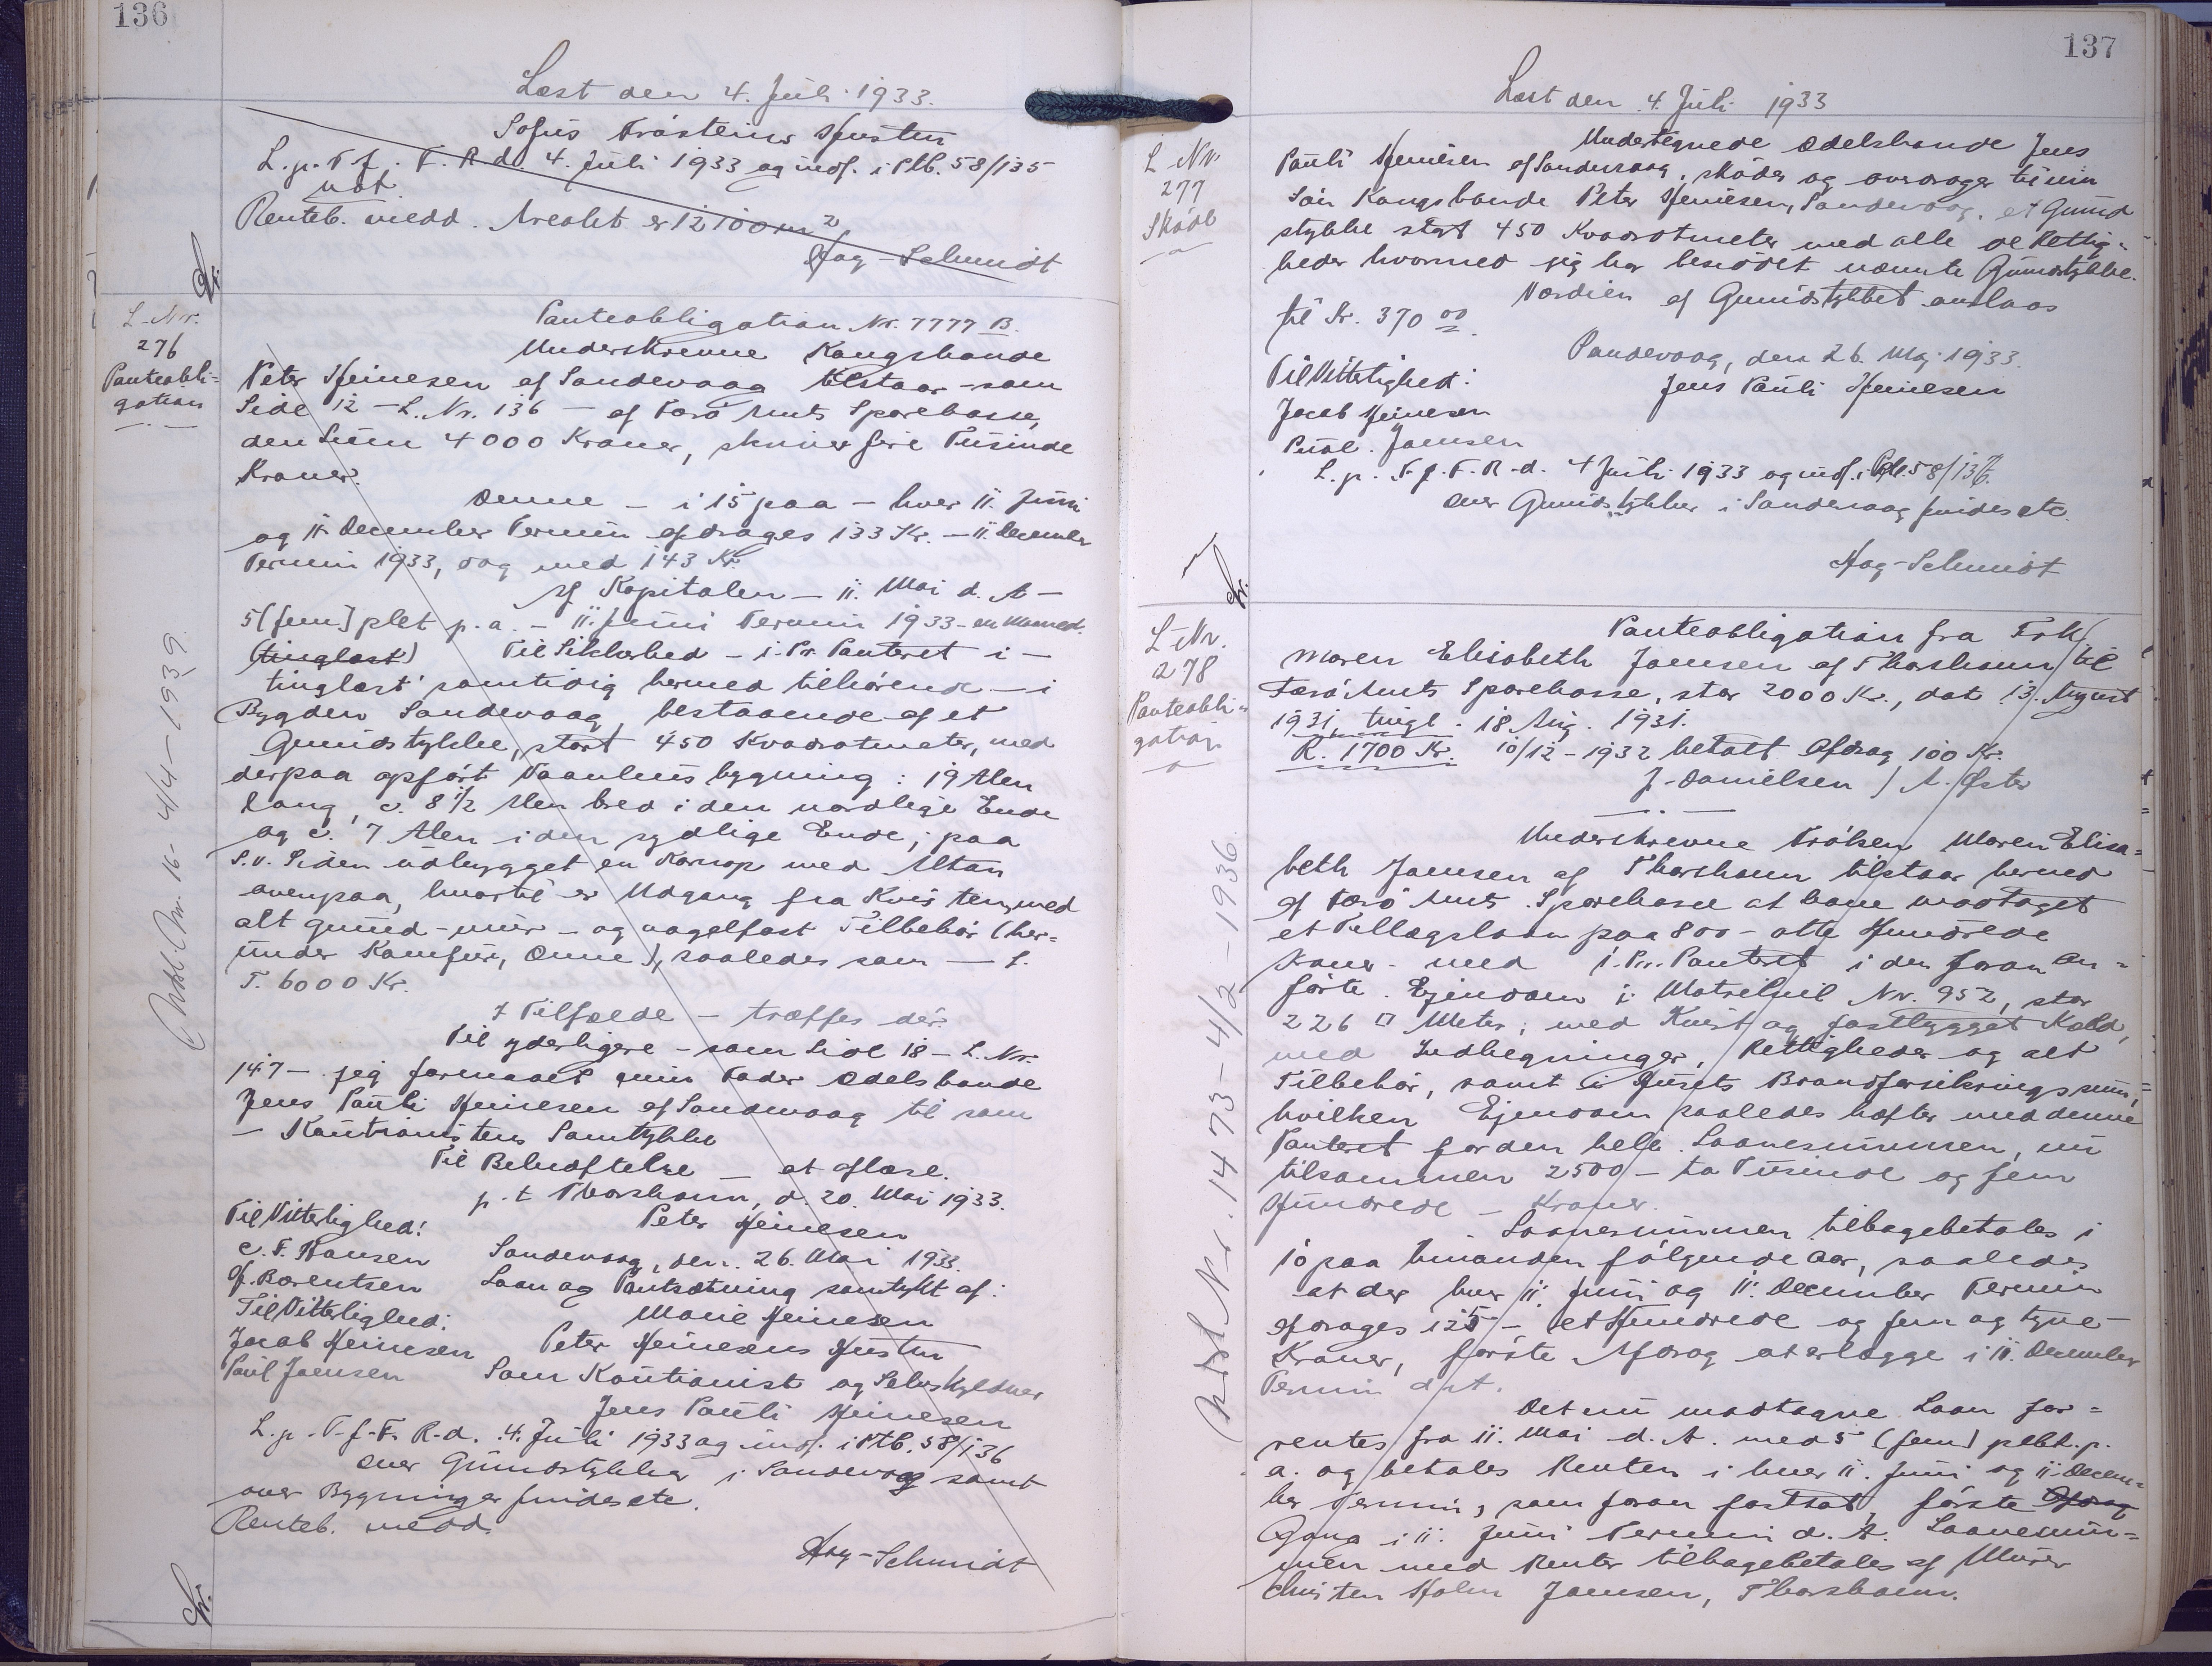 136
Læst den 4. Juli 1933.
Sofus Trósteins Hustru
L. p. T. f. F. R. d. 4. Juli 1933 og indf. i Ptb. 58/135
udt.
Renteb. medd. Arealet er 12100 m2
Hag-Schmidt
L-Nr.
276
Panteobli-
gation
Panteobligation Nr. 7777 B.
Underskrevne Kongsbonde
Peter Heinesen af Sandevaag tilstaar - som
Side 12 - L. Nr. 136 - af Færø Amts Sparekasse,
den Sum 4000 Kroner, skriver fire Tusinde
Kroner.
Denne - i 15 paa - hver 11. Juni
og 11. December Termin afdrages 133 Kr. - 11. December
Termin 1933, dog med 143 Kr.
af Kapitalen - 11. Mai d. A -
5 (fem) pCt p. a. - 11. Juni Termin 1933 - en
(tinglæst) Til Sikkerhed - i. Pr. Panteret i -
tinglæst samtidig hermed tilhørende - i
Bygden Sandevaag, bestaaende af et
Grundstykke, stort 450 Kvadratmeter, med
derpaa opført Vaaningshus bygning: 19 Alen
lang, c. 8 1/2 Alen bred i den nordlige Ende
og c. 7 Alen i den sydlige Ende; paa
S. V. Siden udbygget en Karnap med Altan
ovenpaa, hvortil er Udgang fra Kvisten, med
alt grund- mur- og nagelfast Tilbehør (her-
under Komfur, Ovne), saaledes som - L.
T. 6000 Kr.
I Tilfælde - træffes dér.
Til yderligere - som Side 18 - L. Nr.
147 - jeg formaaet min Fader Odelsbonde
Jens Pauli Heinesen af Sandevaag til som
- Kautionistens Samtykke
Til Bekræftelse - at aflæse.
p. t. Thorshavn, d. 20. Mai 1933.
Til Vitterlighed: Peter Heinesen
C. F. Hansen Sandevaag, den. 26. Mai 1933.
Bærentsen Laan og Pantsætning samtykt af:
Til Vitterlighed: Marie Heinesen
Jacob Heinesen Peter Heinesens Hustru
Paul Joensen Som Kautionist og Selvskyldner
Jens Pauli Heinesen
L. p. T. f. F. R-d. 4. Juli 1933 og indf. i Ptb. 58/136
Over Grundstykker i Sandevaag samt
over Bygninger findes etc.
Renteb. medd.
Hag-Schmidt
Nr. 16- 4/4-1939.
137
Læst den 4. Juli 1933
L Nr.
277
Skøde
Undertegnede Odelsbonde Jens
Pauli Heinesen af Sandevaag, skøder og overdrager til min
Søn Kongsbonde Peter Heinesen, Sandevaag, et Grund
stykke stort 450 Kvadratmeter med alle de Rettig-
heder hvormed jeg har besiddet nævnte Grundstykke.
Værdien af Grundstykket anslaas
til Kr. 370 00
Sandevaag, den 26. Maj 1933.
Til Vitterlighed: Jens Pauli Heinesen
Jacob Heinesen
Paul. Joensen
L. p. T. f. F. R-d. 4 Juli 1933 og indf. i Ptb. 58/137.
Over Grundstykker i Sandevaag findes etc.
Hag-Schmidt
L-Nr.
278
Panteobli-
gation
Panteobligation fra Frk.
Maren Elisabeth Joensen af Thorshavn til
Færø Amts Sparekasse, stor 2000 Kr., dat 13. August
1931, tingl. 18 Aug. 1931.
R. 1700 Kr. 10/12-1932 betalt Afdrag 100 Kr.
J. Danielsen / A. Øster
Underskrevne Frøken Maren Elisa-
beth Joensen af Thorshavn tilstaar herved
af Færø Amts Sparekasse at have modtaget
et Tillægslaan paa 800 - otte Hundrede
Kroner - med i. Pr. Panteret i den foran an-
førte Ejendom i Matrikul Nr. 952, stor
226 □ Meter, med Kvist og fastbygget Kold,
med Indhegninger, Rettigheder og alt
Tilbehør, samt i Husets Brandforsikringssum,
hvilken Ejendom saaledes hæfter med denne
Panteret for den hele Laanesummen, nu
tilsammen 2500 - to Tusinde og fem
Hundrede - Kroner.
Laanesummen tilbagebetales i
10 paa hinanden følgende Aar, saaledes
at der hver 11. Juni og 11. December Termin
afdrages 125 - et Hundrede og fem og tyve -
Kroner, første Afdrag at erlægge i 11. December
Termin d. A.
Det nu modtagne Laan for-
rentes fra 11. Mai d. A. med 5 (fem) pCt. p.
a. og betales Renten i hver 11. Juni og 11. Decem-
ber Termin, som foran fastsat, første Afdrag
Gang i 11. Juni Termin d. A. Laanesum-
men med Renter tilbagebetales af Murer
Christen Holm Joensen, Thorshavn.
Nr. 1473-4/2-1936